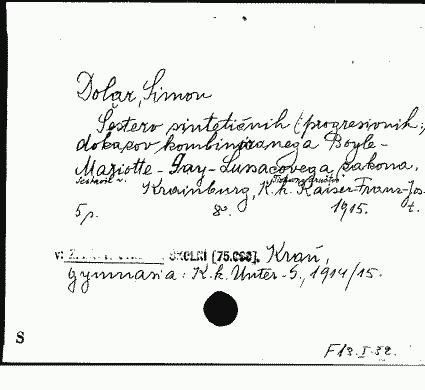 Dolar, Simon
Šestero sintetičnih (progresivnih)
dokazov kombiniranega Boyle-
Mariotte-Gay-Lussacovega zakona.
Krainburg, K.k. Kaiser-Franz-Jos.
5 p. 8º. 1915. t.
v: ŠKOLNÍ [75.000]. Krain,
gymnasia: K.k. Unter-G., 1914/15.
S
F13.I.32.